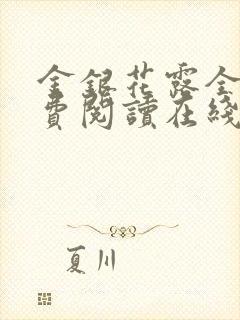 金銀花露全
費閱讀在綫
夏川